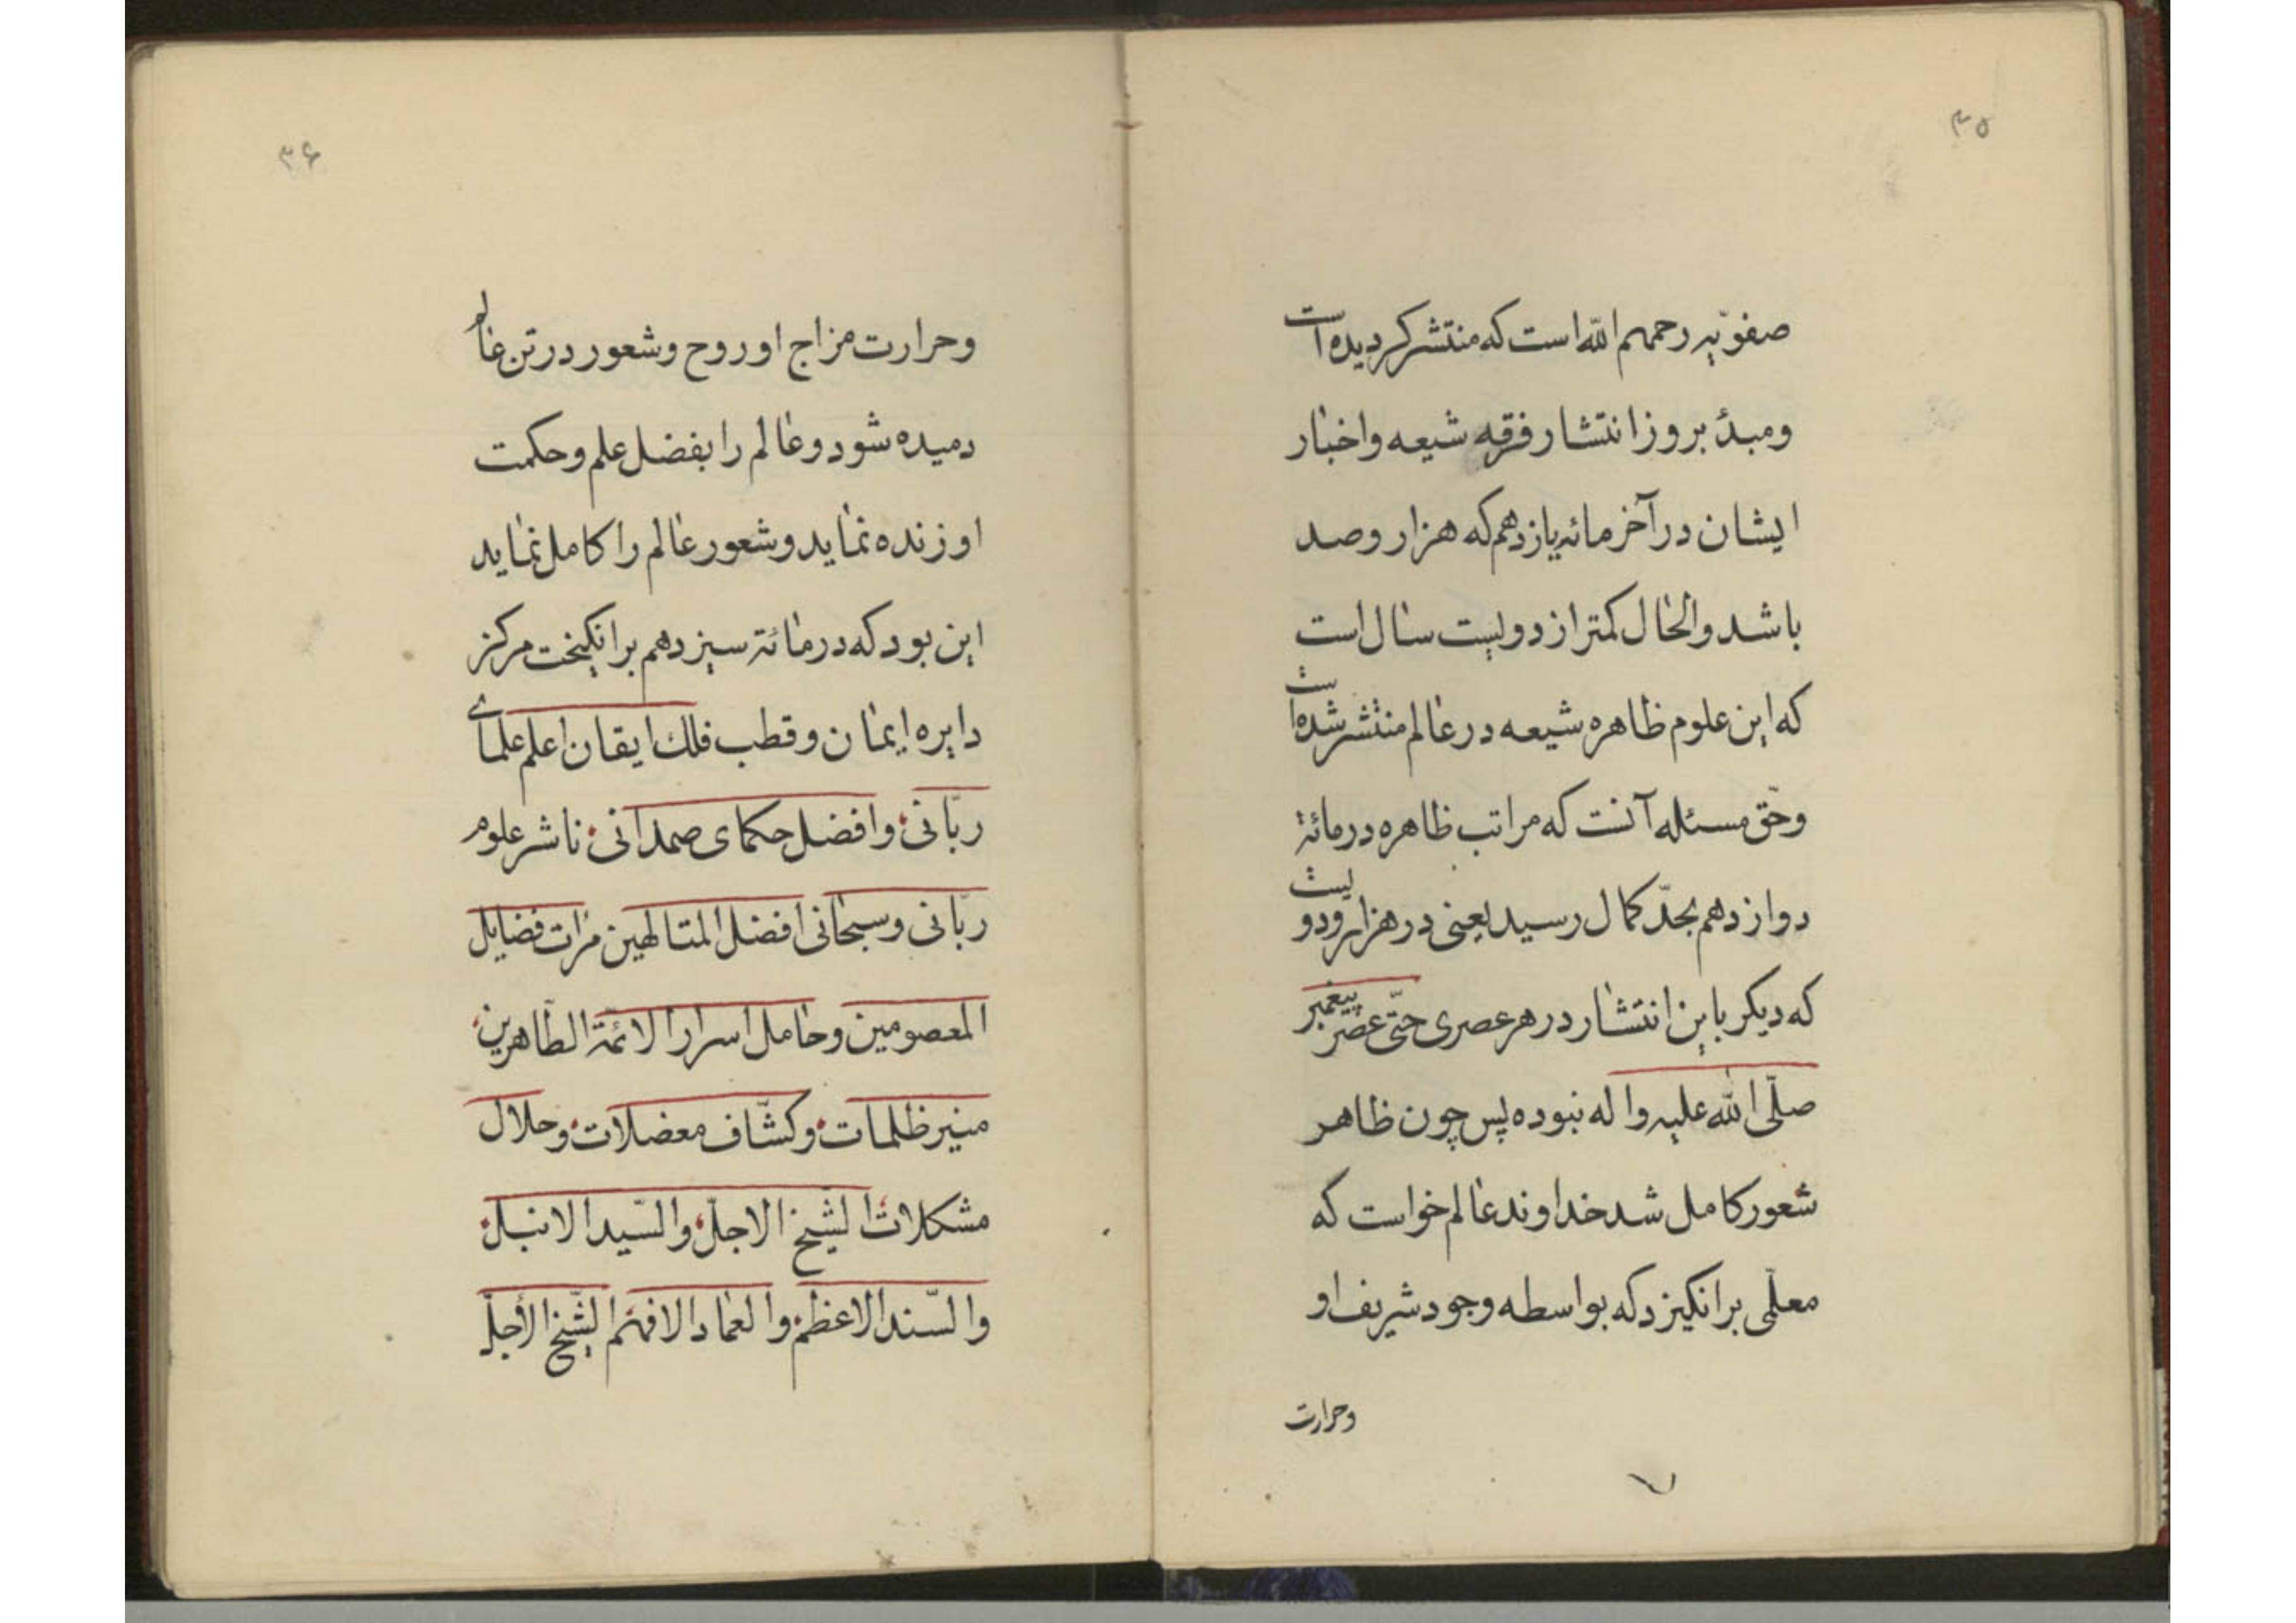 ۳۵
صفویّه رحمهم الله است که منتشر گردیده است
و مبدأ بروز انتشار فرقه شیعه و اخبار
ایشان در آخر مائه یازدهم که هزار و صد
باشد و الحال کمتر از دویست سال است
که این علوم ظاهره شیعه در عالم منتشر شده است
و حقّ مسئله آنست که مراتب ظاهره در مائهٔ
دوازدهم بحدّ کمال رسید یعنی در هزار و دویست
که دیگر باین انتشار در هر عصری حتّی عصر پیغمبر
صلّی الله علیه و اله نبوده پس چون ظاهر
شعور کامل شد خداوند عالم خواست که
معلّمی برانگیزد که بواسطه وجود شریف او
وحرارت
۷
۳۶
وحرارت مزاج او روح و شعور در تن عالم
دمیده شود و عالم را بفضل علم و حکمت
او زنده نماید و شعور عالم را کامل نماید
این بود که در مائة سیزدهم برانگیخت مرکز
دایره ایمان و قطب فلک ایقان اعلم علمای
ربّانی و افضل حکمای صمدانی ناشر علوم
ربّانی و سبحانی افضل المتالهین مرات فضایل
المعصومین و حامل اسرار الائمّة الطّاهرین
منیر ظلمات و کشّاف معضلات و حلال
مشکلات الشّیخ الاجلّ والسّید الانبل
والسّند الاعظم والعماد الافهم الشّیخ الأجلّ